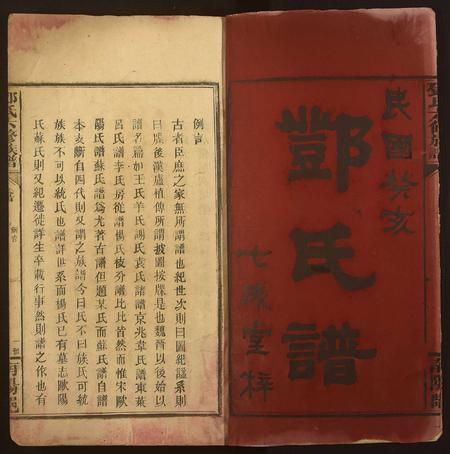 民國癸亥
鄧氏譜
七修堂梓
例言
古者臣庶之家無所謂譜也紀世次則曰圖紀謚系則
曰牒後漢盧植傳所謂披圖按牒是也魏晉以後始以
譜名論如王氏羊氏謝氏袁氏諸譜京兆韋氏譜東萊
呂氏譜李氏房從譜楊氏枝分譜比比皆然而惟宋歐
陽氏譜蘇氏譜爲尤著古譜但題某氏而蘇氏自譜
本支斷自四代則又謂之族譜今曰氏不曰族氏可統
族族不可以統氏也譜詳世系而楊氏已有墓志歐陽
氏蘇氏則又紀遷徙詳生卒載行事然則譜之作也有
鄧氏六修族譜
例言
南陽